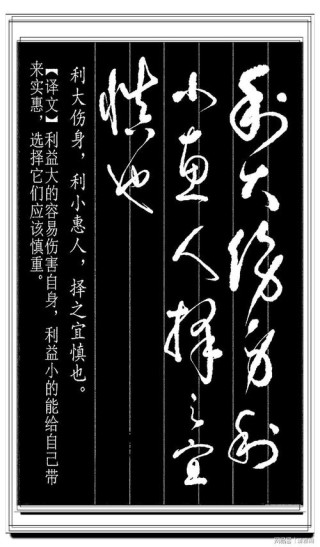 利大傷身利
小惠人擇之宜
慎也
利大伤身，利小惠人，择之宜慎也。
【译文】利益大的容易伤害自身，利益小的能给自己带
来实惠，选择它们应该慎重。